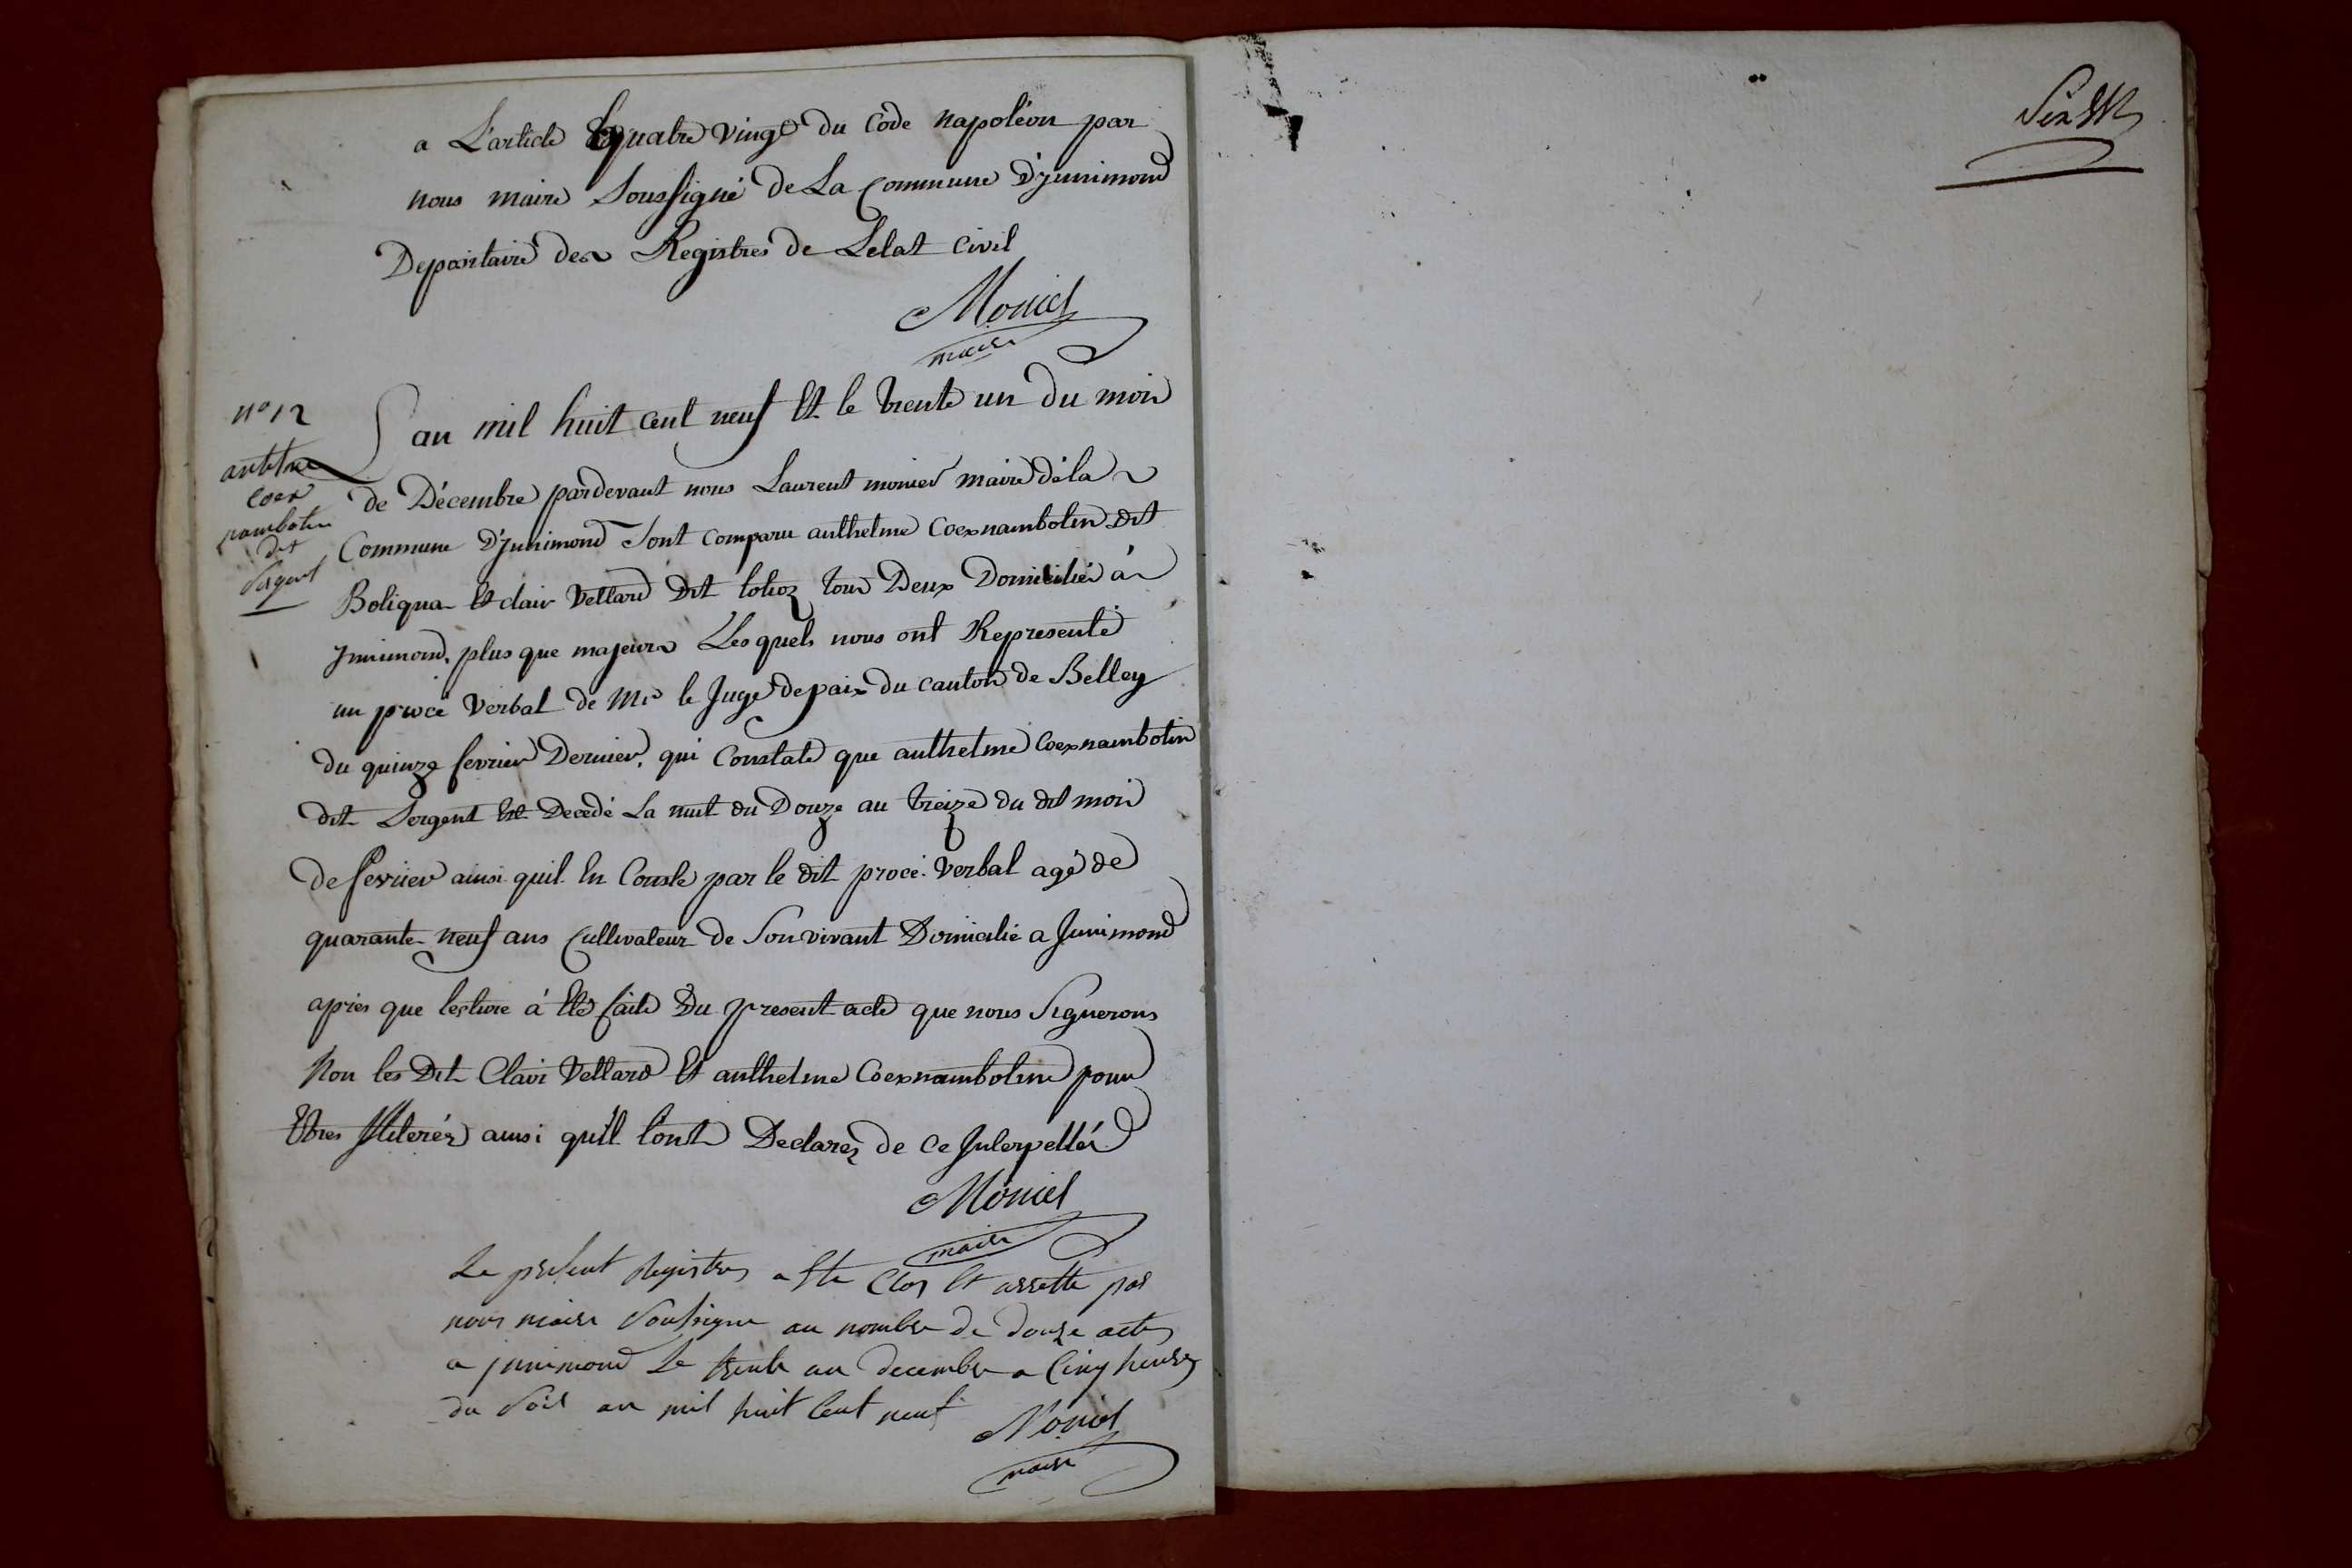 a L'article quatre vingt du Code napoléon par
nous maire Soussigné de La Commune D'ynnimond
Depositaire des Registres de Letat Civil
Monier
maire
n° 12
anthelme
Coex
nambotin
dit
Sergent
L'an mil huit cent neuf Et le trente un du mois
de Décembre pardevant nous Laurent monier maire déla
Commune D'ynnimond Sont comparu anthelme Coexnambotin dit
Boliqua Et clair Vettard Dit lolioz tous Deux Domicilié à
ynnimond, plus que majeurs Lesquels nous ont Representé
un procé Verbal de Mr le Juge de paix du canton de Belley
du quinze fevrier Dernier, qui Constate que anthelme Coexnambotin
dit Sergent Est Decedé La nuit du Douze au treize du dit mois
de fevrier ainsi quil En Conste par le dit procé Verbal agé de
quarante neuf ans Cultivateur de Son vivant Domicilié a Innimond
après que lecture à Eté faite Du present acte que nous Signerons
Non les Dit Clair Vettard Et anthelme Coexnambotin pour
Etres Illiterés ainsi qu'il l'ont Declarez de ce Interpellés
Monier
maire
Le present Registres a Ete Clos Et arretté par
nous maire Soussigne au nombre de douze actes
a ynnimond Le trente un decembre a Cinq heures
du Soir an mil huit Cent neuf
Monier
maire